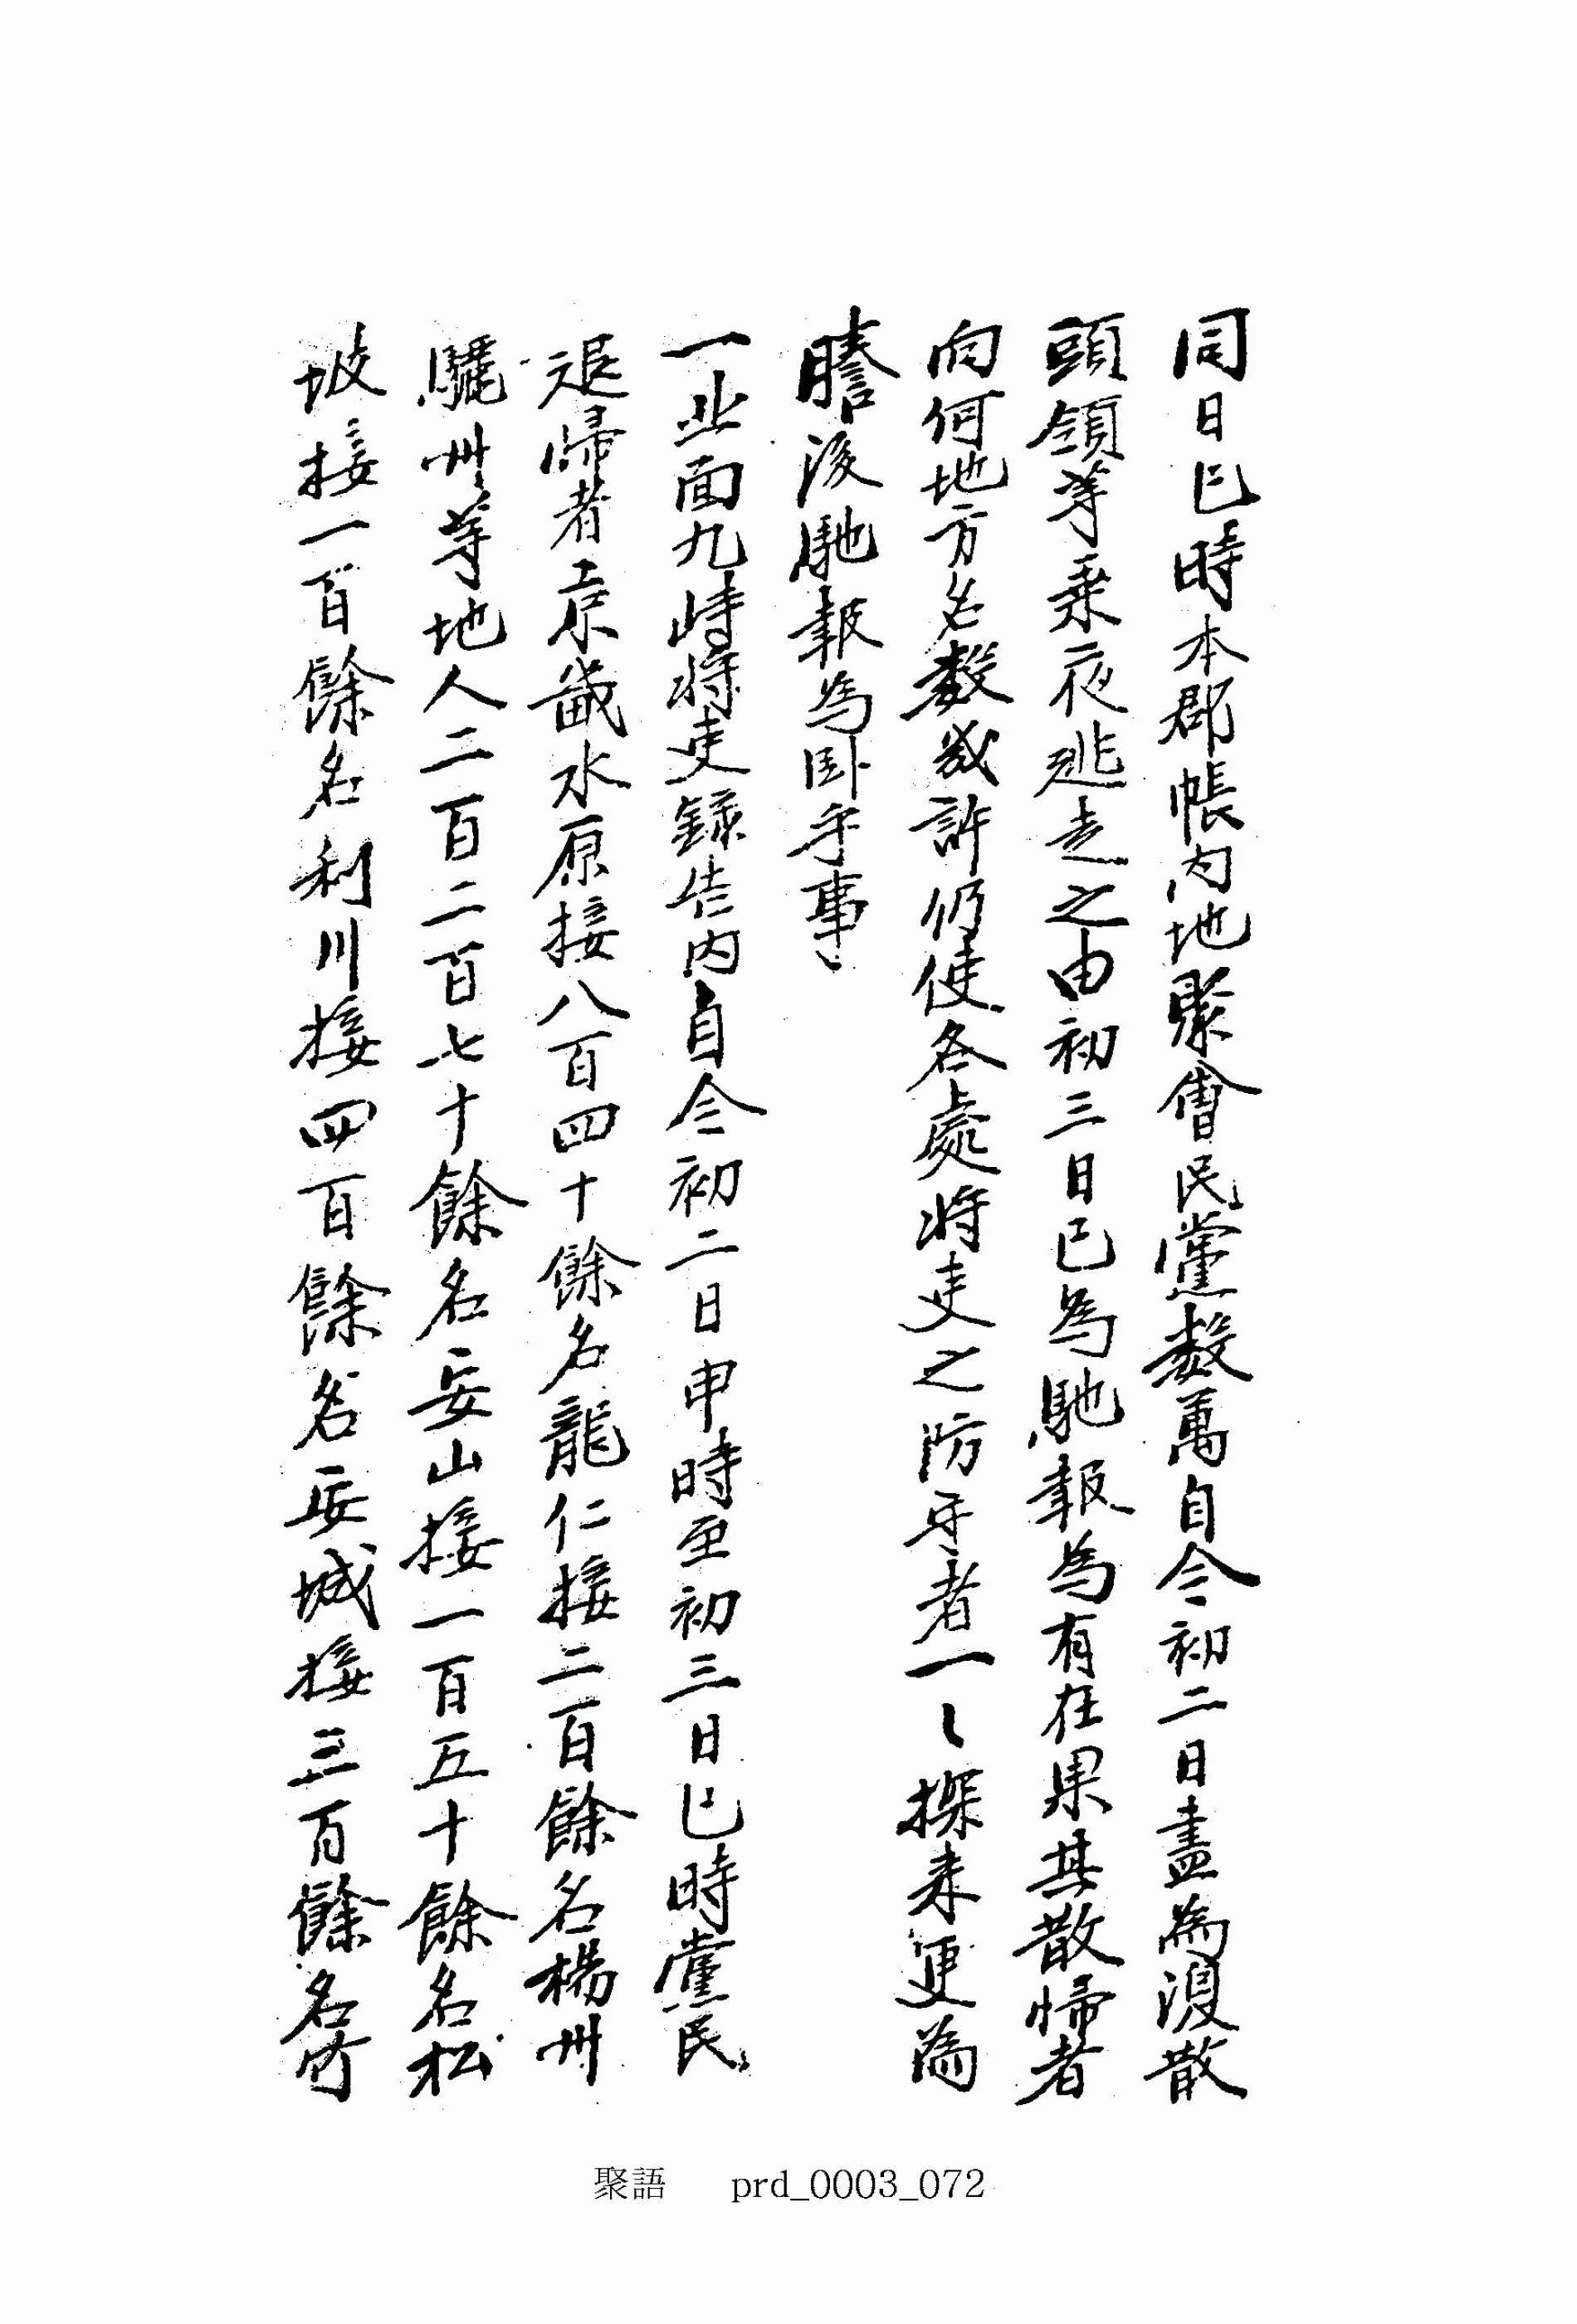 同日巳時本郡帳內地聚會民黨數萬自今初二日盡為潰散
頭領等乘夜逃走之由初三日已為馳報為有在果其散歸者
向何地方名數幾許仍使各處將吏之防守者一〻探來更為
謄後馳報為卧乎事
一北面九峙將吏錄告內自今初二日申時至初三日巳時黨民
退歸者京畿水原接八百四十餘名龍仁接二百餘名楊州
驪州等地人二百二百七十餘名安山接一百五十餘名松
坡接一百餘名利川接四百餘名安城接三百餘名竹
聚語 prd_0003_072